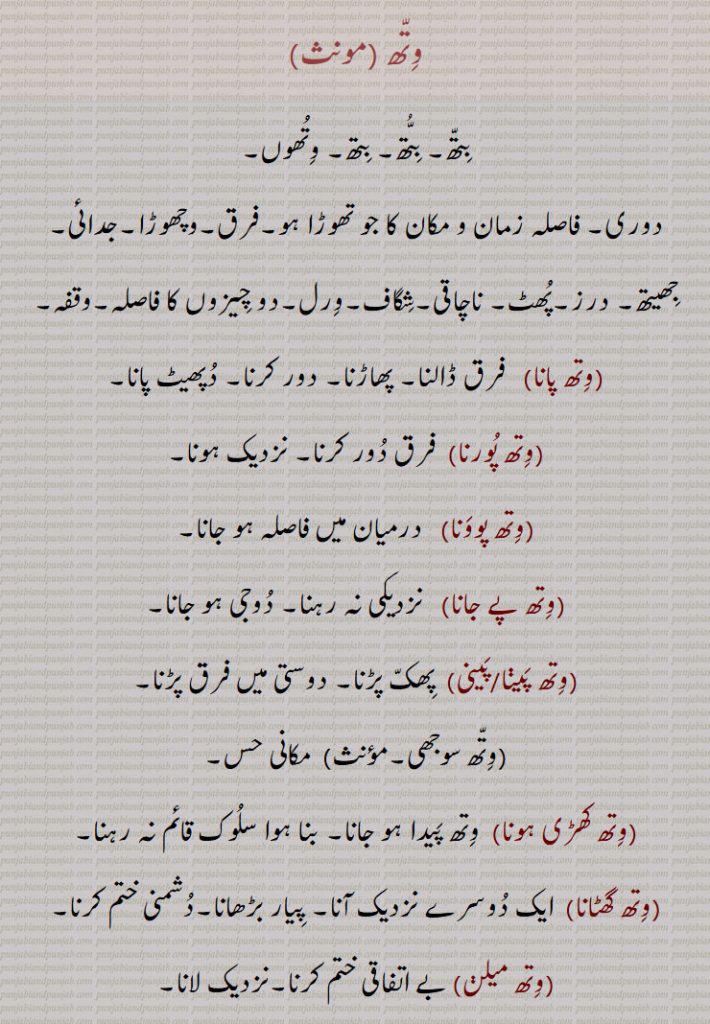 وِتّھ (مونث)
بِتھّ۔ بِتُّھ۔ بِتھ۔ وِتُھوں۔
دوری۔ فاصلہ زمان و مکان کا جو تھوڑا ہو۔فرق۔وچھوڑا۔جدائی۔
جِھیتھ۔ درز۔پُھٹ۔ ناچاقی۔شِگاف۔وِرل۔دو چیزوں کا فاصلہ۔وقفہ۔
(وِتھ پانا) فرق ڈالنا۔ پھاڑنا۔ دور کرنا۔ دُپھیٹ پانا۔
(وِتھ پُورنا) فرق دُور کرنا۔ نزدیک ہونا۔
(وِتھ پووَنا) درمیان میں فاصلہ ہو جانا۔
(وِتھ پے جانا) نزدیکی نہ رہنا۔ دُوجی ہو جانا۔
(وِتھ پَینا/پَینی) پِھکّ پڑنا۔ دوستی میں فرق پڑنا۔
(وِتّھ سوجھی۔مؤنث) مکانی حس۔
(وِتھ کھڑی ہونا) وِتھ پَیدا ہو جانا۔ بنا ہوا سلُوک قائم نہ رہنا۔
(وِتھ گھٹانا) ایک دُوسرے نزدیک آنا۔ پِیار بڑھانا۔دُشمنی ختم کرنا۔
(وِتھ میلݨ) بے اتفاقی ختم کرنا۔نزدیک لانا۔